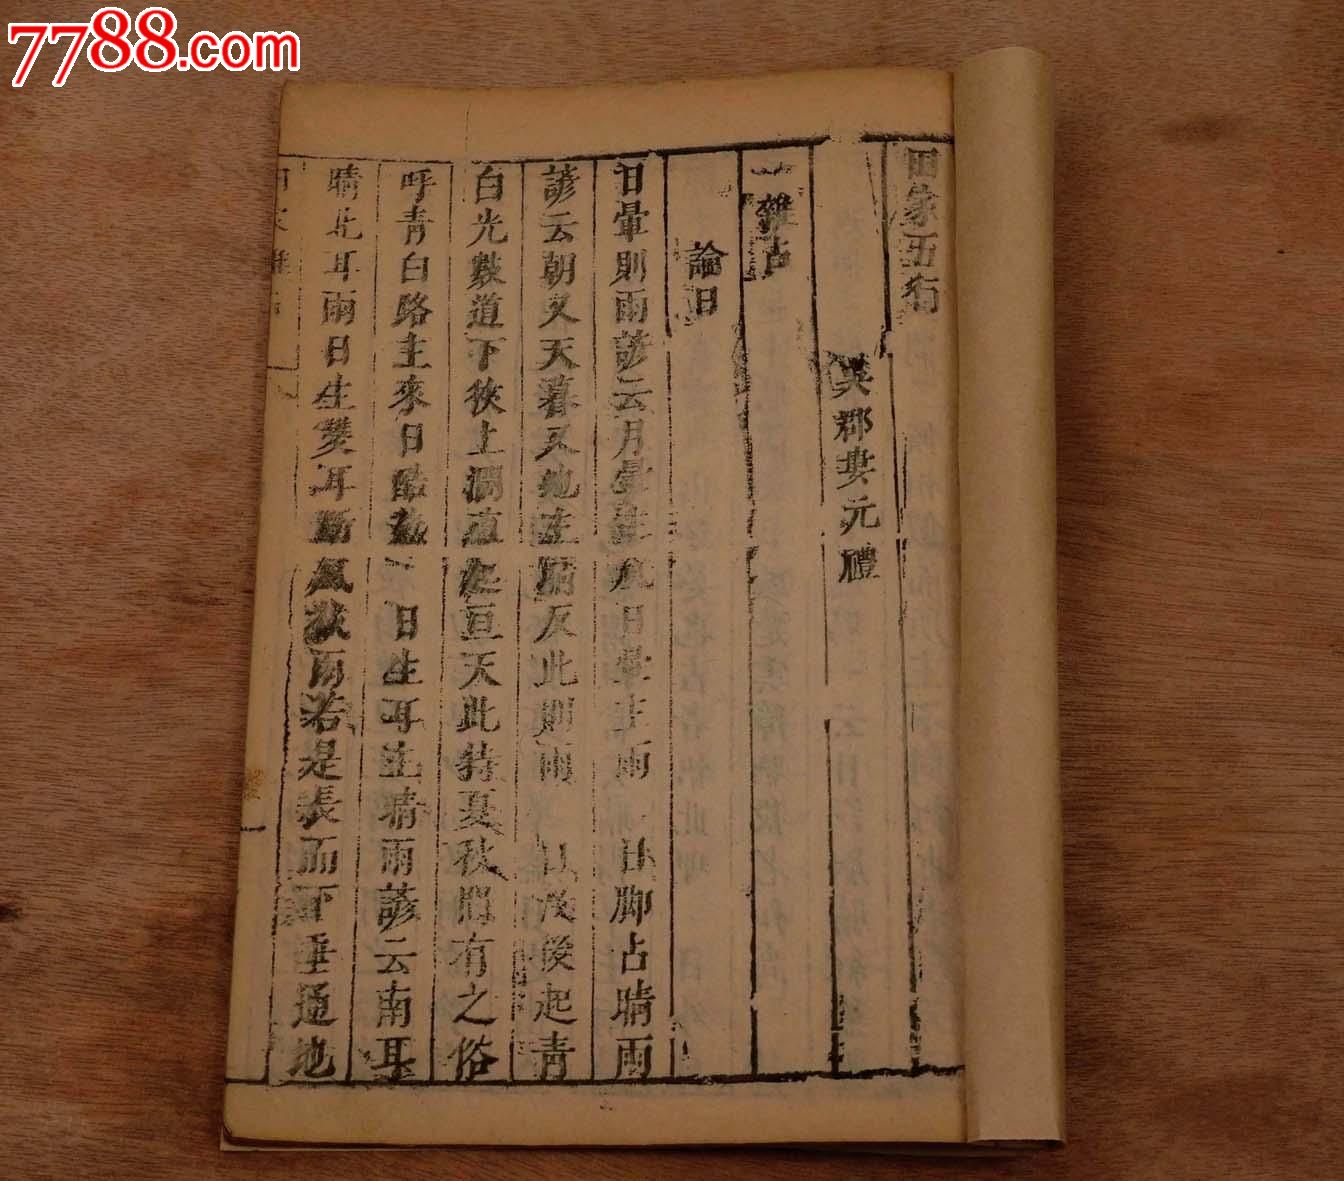 7788.com
田家五行
吳郡婁元禮
一雜占
論日
日暈則雨諺云月暈主風日暈主雨 日脚占晴雨
諺云朝又天暮又地主晴反此則雨 日沒後起青
白光數道下狹上濶直起亘天此特夏秋間有之俗
呼青白路主來日酷熱 日生耳主晴雨諺云南耳
晴北耳雨日生雙耳斷風截雨若是長而下垂通地